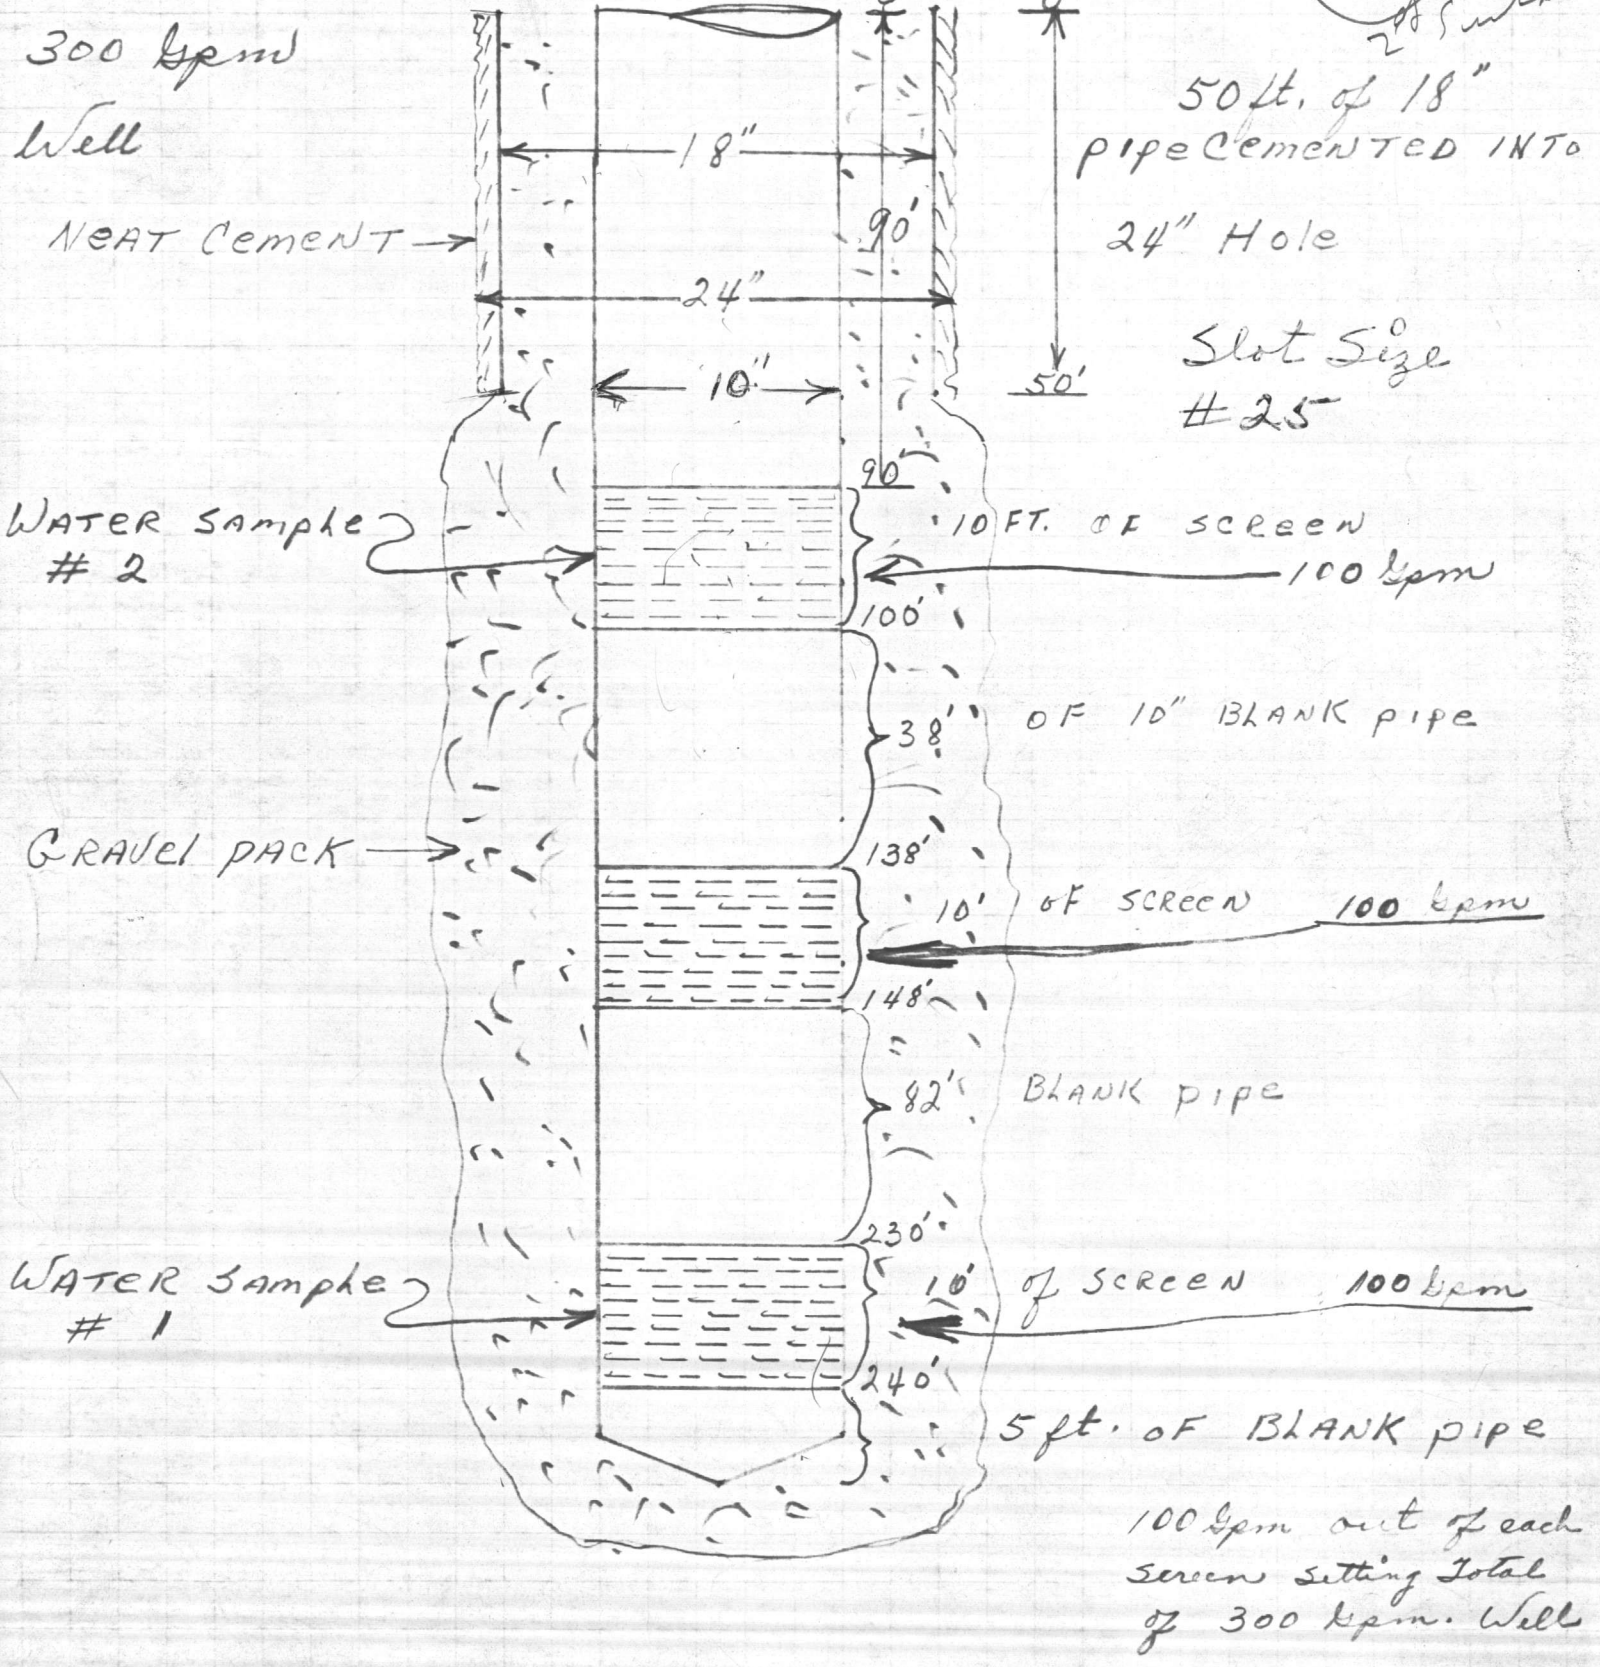 300 Gpm
Well
50 ft. of 18"
pipe CEMENTED INTO
18"
NEAT CEMENT
90'
24" Hole
24"
Slot Size
#25
10"
50'
90'
WATER SAMPLE
# 2
10 FT. OF SCREEN
100 Gpm
100'
38' OF 10" BLANK pipe
GRAVEL PACK
138'
10' OF SCREEN 100 Gpm
148'
82' BLANK pipe
230'
WATER SAMPLE
# 1
10' of SCREEN 100 Gpm
240'
5 ft. OF BLANK pipe
100 Gpm out of each
screen setting Total
of 300 Gpm. Well